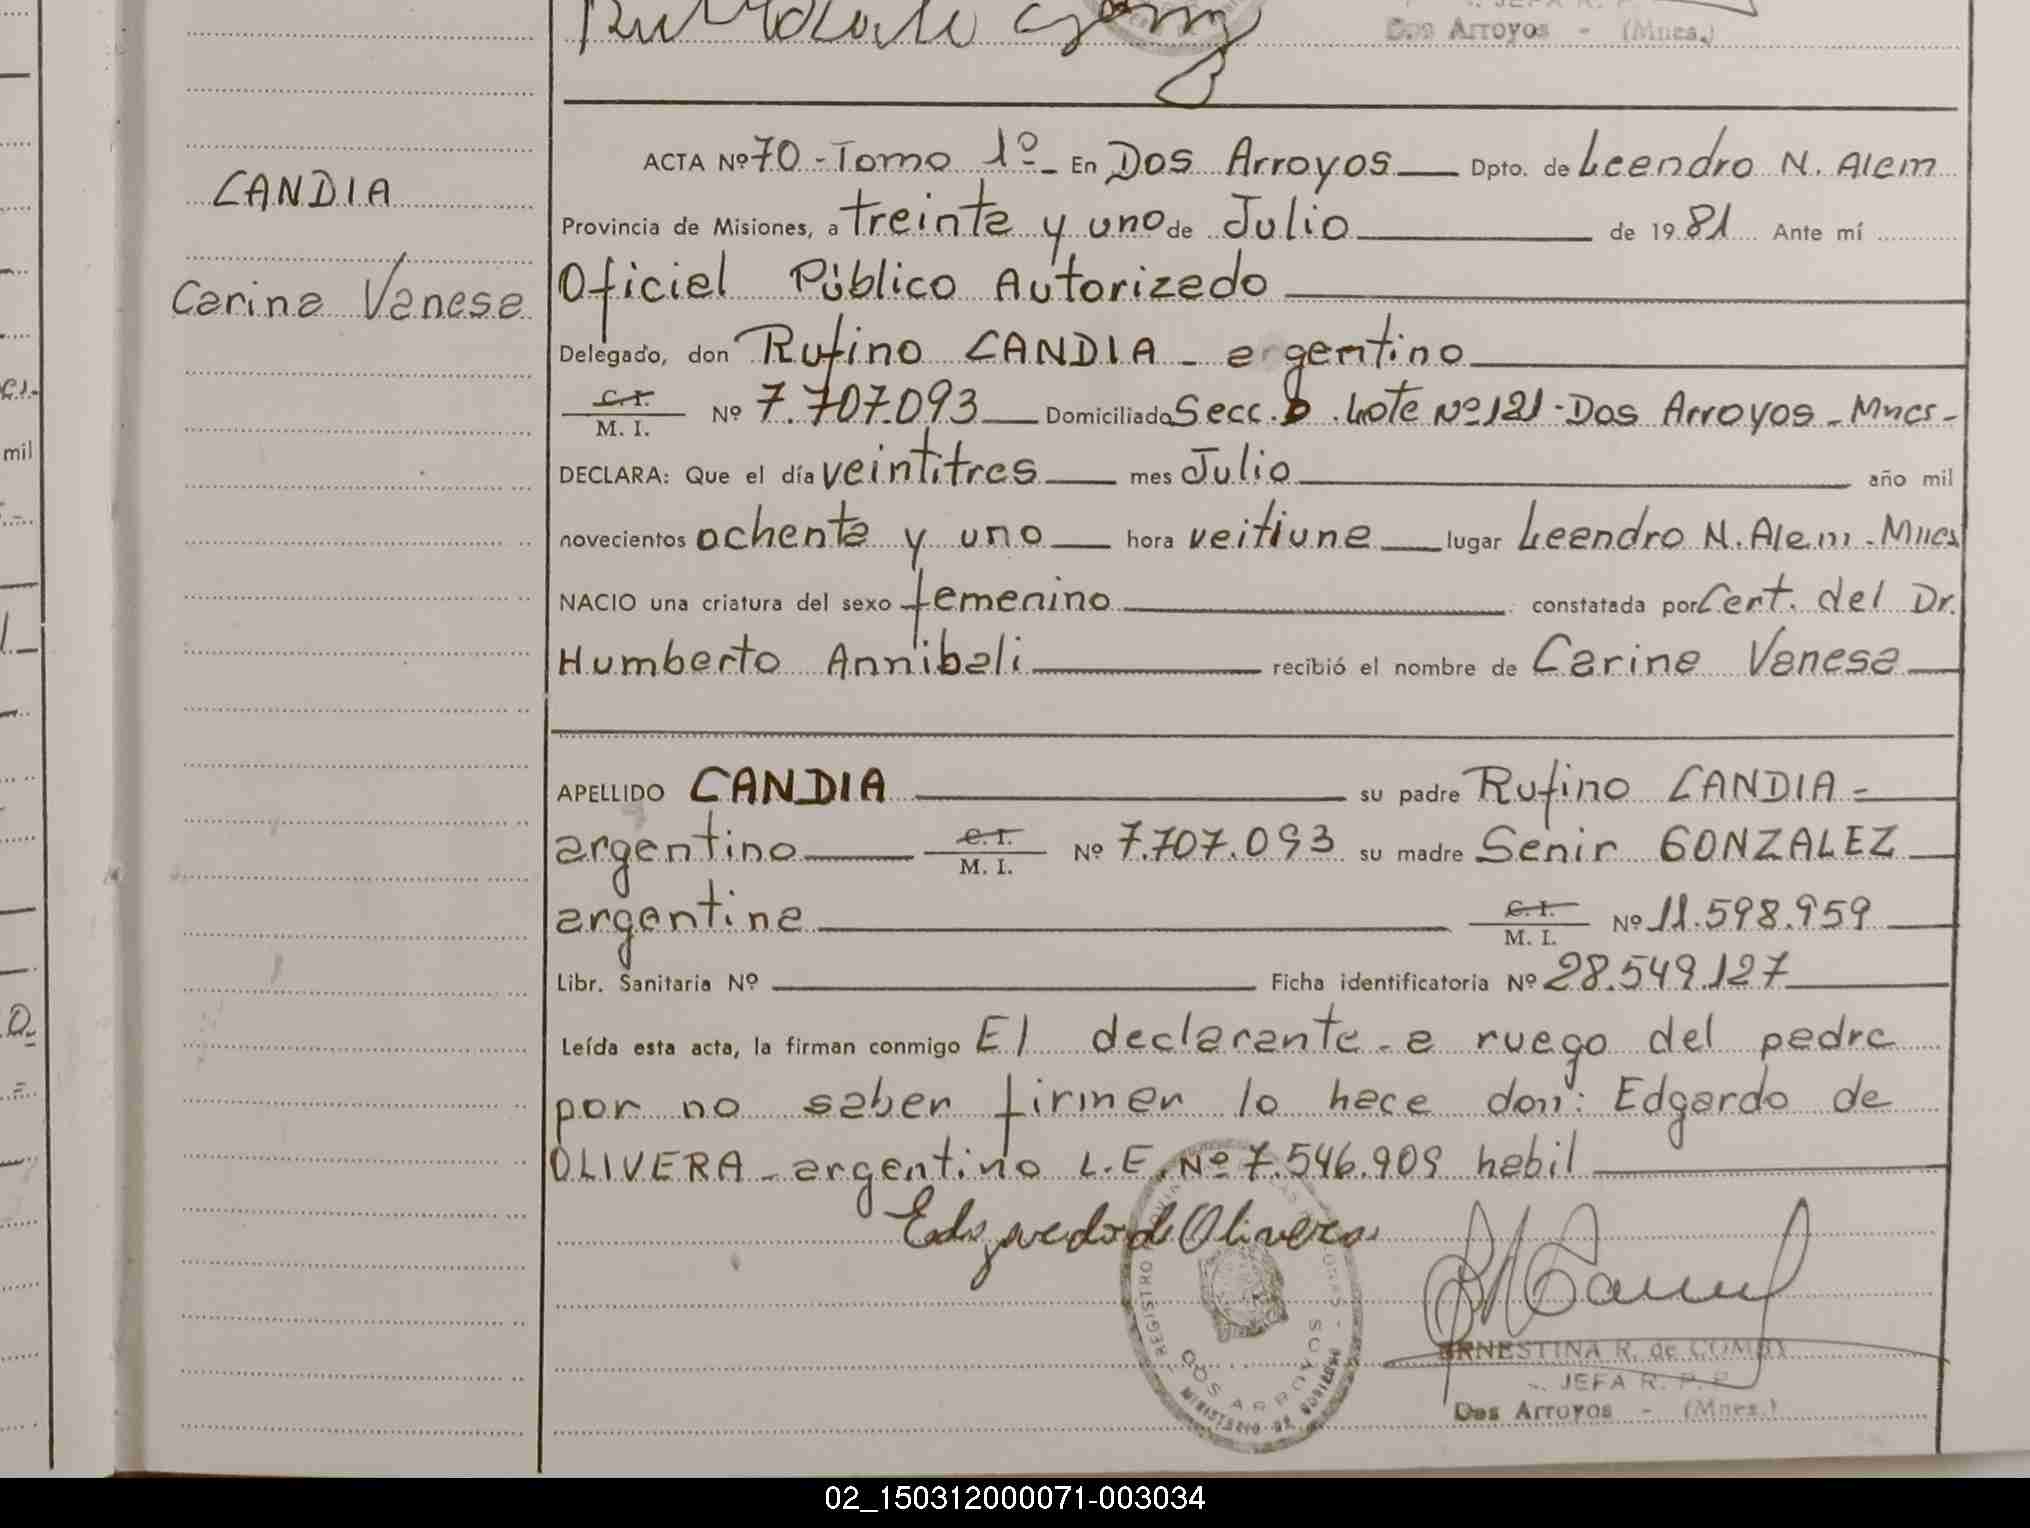 Dos Arroyos - (Mnes.)
CANDIA
Carina Vanesa
ACTA Nº 70 - Tomo 1º - En Dos Arroyos Dpto. de Leandro N. Alem
Provincia de Misiones, a treinta y uno de Julio de 1981 Ante mí
Oficial Público Autorizado
Delegado, don Rufino CANDIA - argentino
C. I.
M. I. Nº 7.707.093 Domiciliado Secc. D. Lote Nº 121 - Dos Arroyos - Mnes -
DECLARA: Que el día veintitres mes Julio año mil
novecientos ochenta y uno hora veitiuna lugar Leandro N. Alem - Mnes
NACIO una criatura del sexo femenino constatada por Cert. del Dr.
Humberto Annibali recibió el nombre de Carina Vanesa
APELLIDO CANDIA su padre Rufino CANDIA -
argentino C. I.
M. I. Nº 7.707.093 su madre Senir GONZALEZ
argentina C. I.
M. I. Nº 11.598.959
Libr. Sanitaria Nº Ficha identificatoria Nº 28.549.127
Leída esta acta, la firman conmigo El declarante - a ruego del padre
por no saber firmar lo hace don: Edgardo de
OLIVERA - argentino L.E. Nº 7.546.909 habil
Edgardo de Olivera
REGISTRO PROVINCIAL DE LAS PERSONAS - DOS ARROYOS
MINISTERIO DE GOBIERNO
ERNESTINA R. de COMBY
JEFA R. P. P.
Dos Arroyos - (Mnes.)
mil
02_150312000071-003034